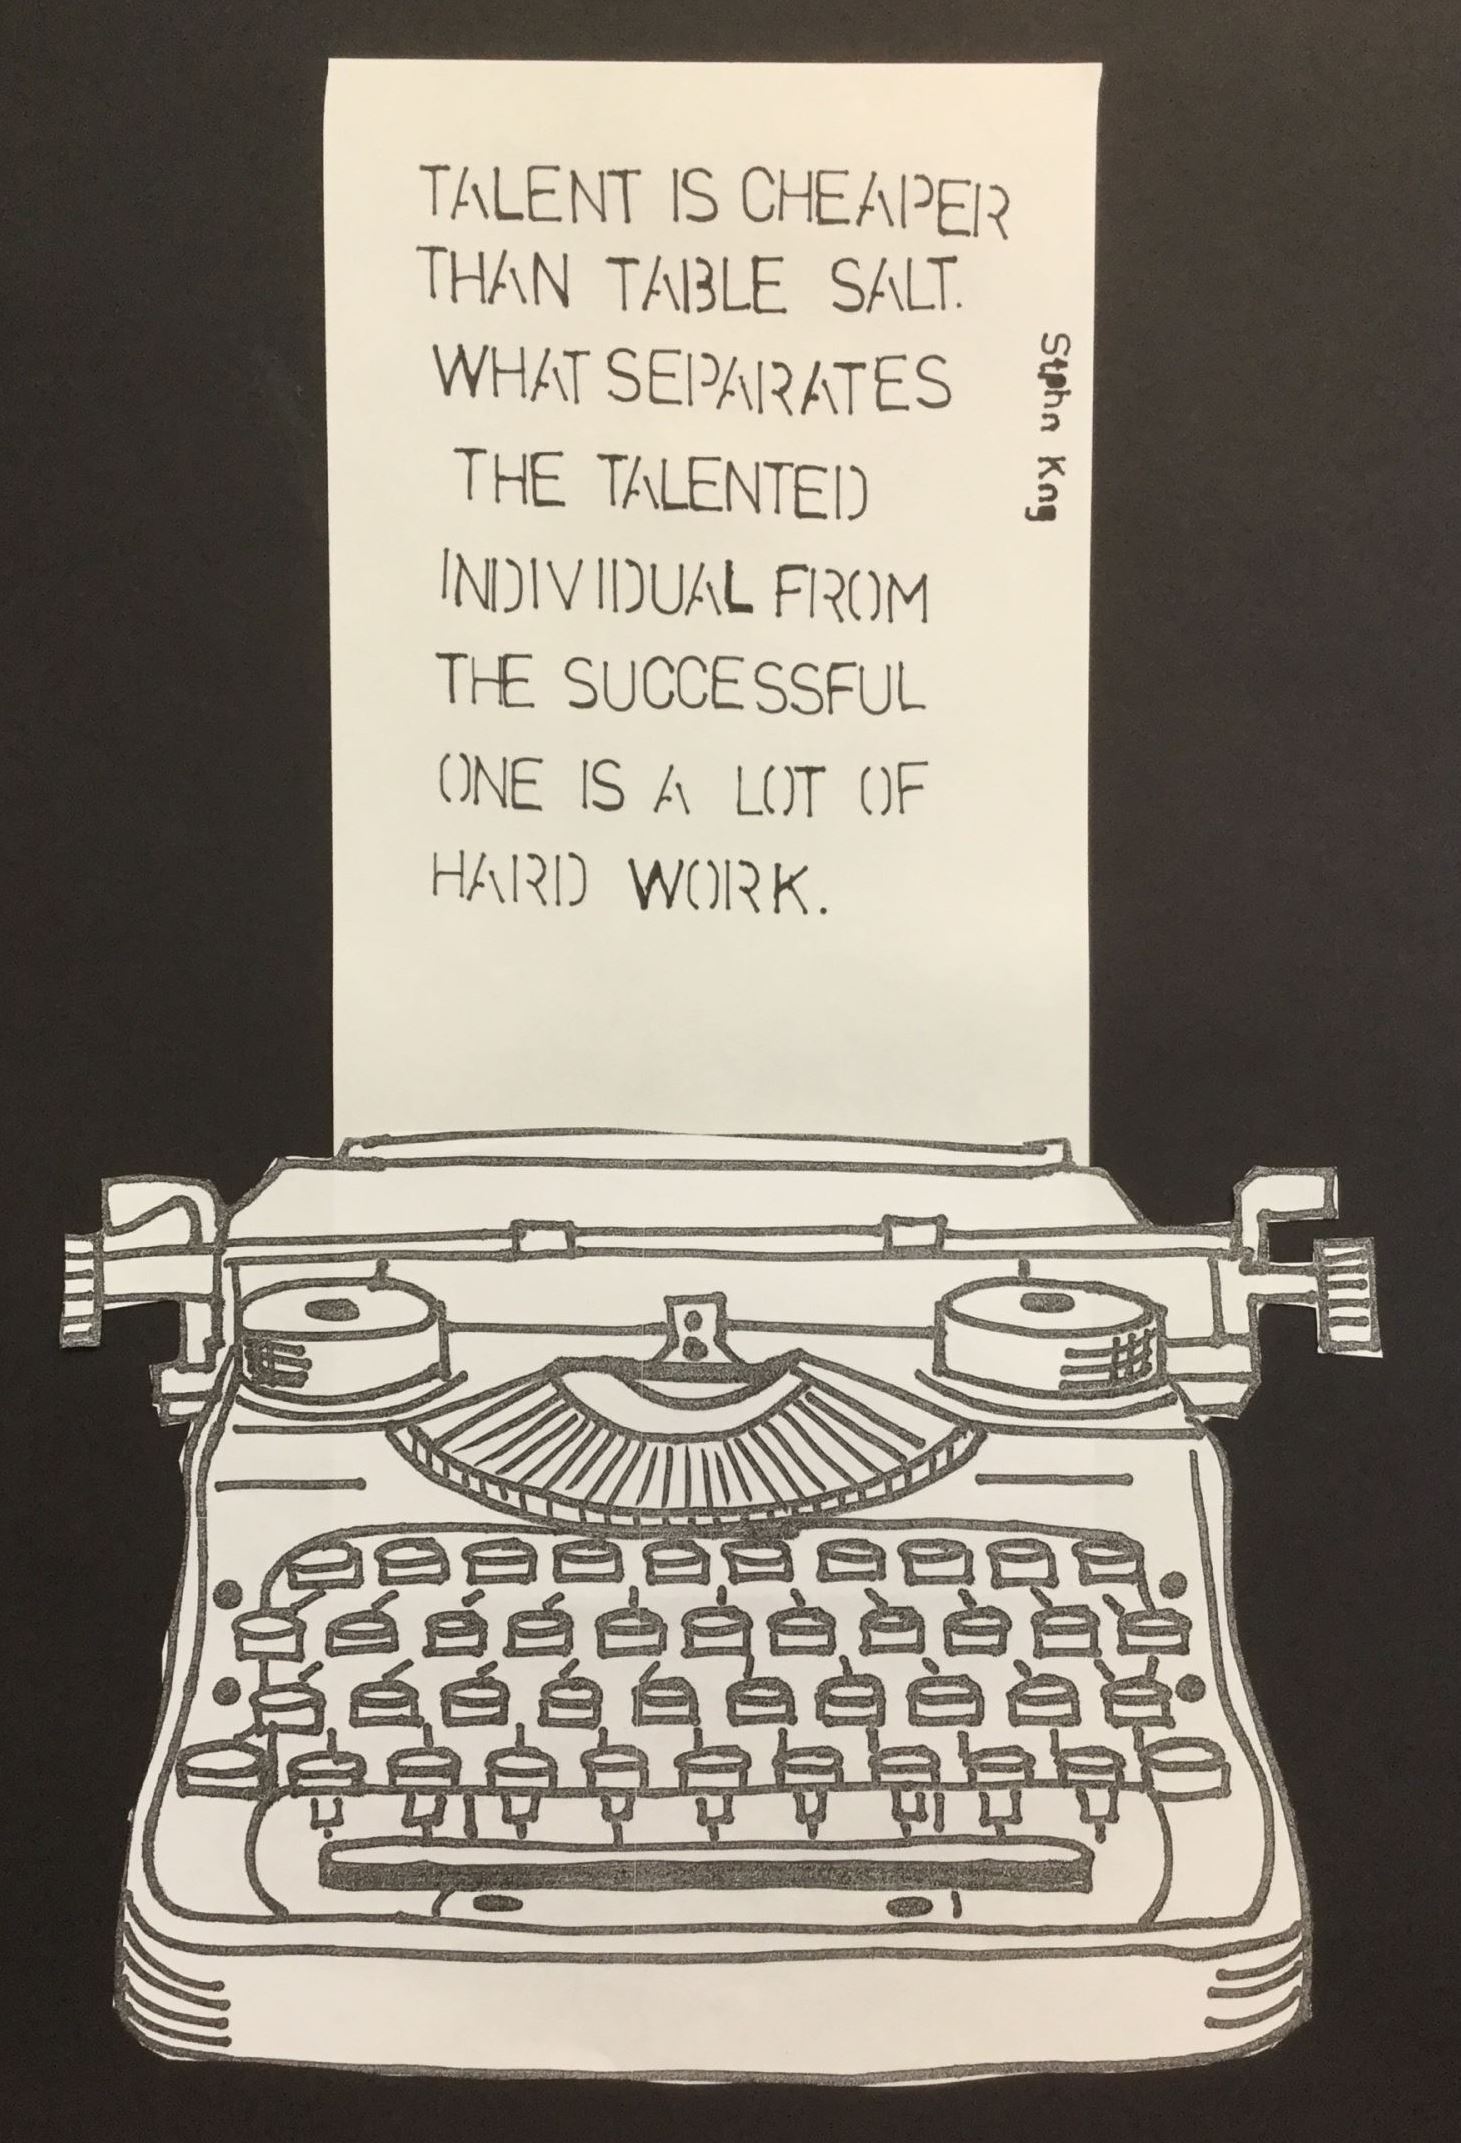 TALENT IS CHEAPER
THAN TABLE SALT.
WHAT SEPARATES
THE TALENTED
INDIVIDUAL FROM
THE SUCCESSFUL
ONE IS A LOT OF
HARD WORK.
Stphn Kng